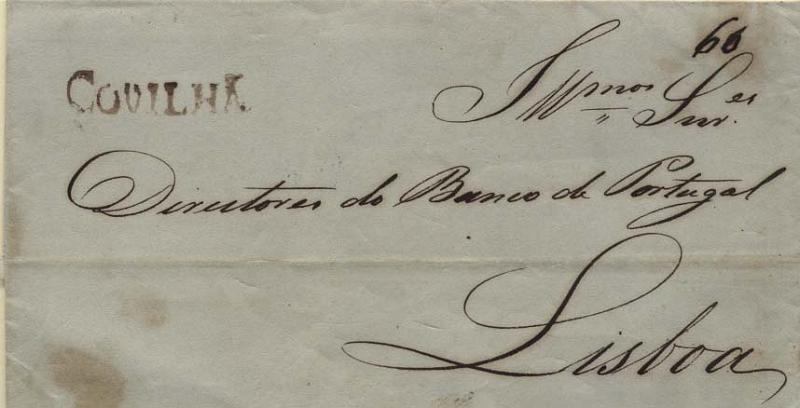 60
COVILHÃ
Illmos Snres.
Directores do Banco de Portugal
Lisboa